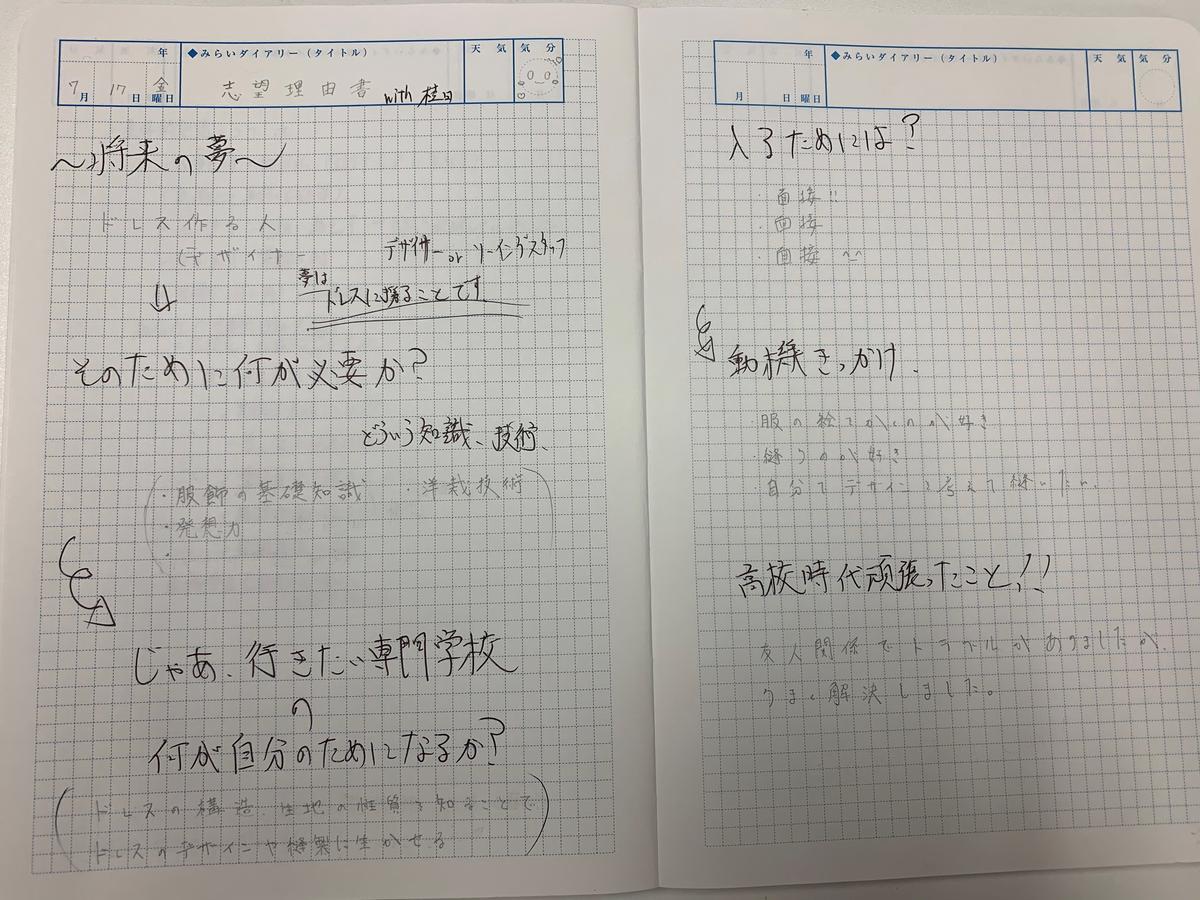 年
◆みらいダイアリー(タイトル)
天気
気分
7月 17日 金曜日
志望理由書 with 桂田
〜将来の夢〜
ドレス作る人
(デザイナー
デザイナー or ソーイングスタッフ
夢は
ドレスに携ることです
そのために何が必要か?
どういう知識、技術、
・服飾の基礎知識 ・洋裁技術
・発想力
・
じゃあ、行きたい専門学校
の
何が自分のためになるか?
ドレスの構造、生地の性質を知ることで
ドレスのデザインや縫製に生かせる
年
◆みらいダイアリー(タイトル)
天気
気分
月 日 曜日
入るためには?
・面接!!
・面接
・面接 ^^
動機きっかけ.
・服の絵をかくのが好き
・縫うのが好き
・自分でデザインを考えて縫いたい.
高校時代頑張ったこと!!
友人関係でトラブルがありましたが、
うまく解決しました。